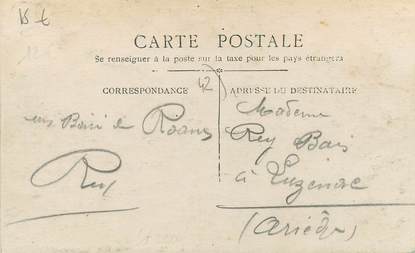 CARTE POSTALE
Se renseigner à la poste sur la taxe pour les pays étrangers
CORRESPONDANCE
42
ADRESSE DU DESTINATAIRE
de Roanne
Rey
Madame
Rey
à Luzenac
(Ariège)